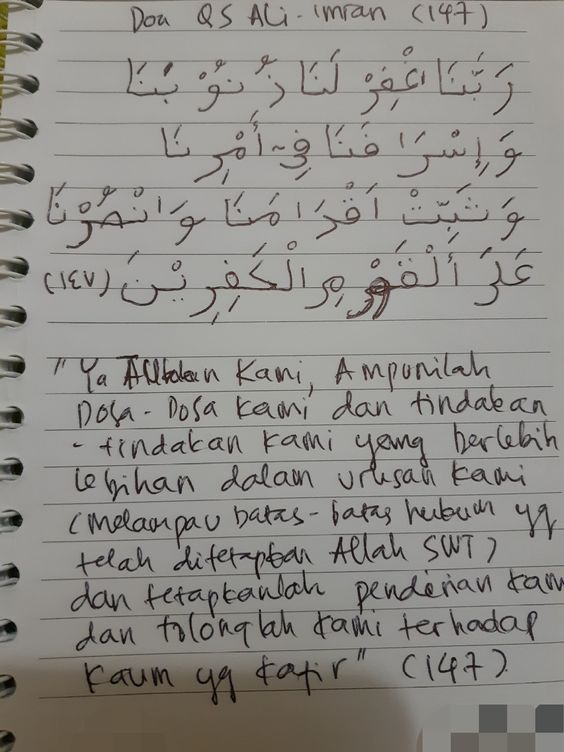 Doa QS Ali-imran (147)
رَبَّنَا اغْفِرْ لَنَا ذُنُوْبَنَا
وَإِسْرَا فَنَا فِيْ أَمْرِنَا
وَثَبِّتْ اَقْدَا مَنَا وَانْصُرْنَا
عَلَى الْقَوْمِ الْكَفِرِيْنَ (١٤٧)
"Ya Tuhan Kami, Ampunilah
Dosa-Dosa kami dan tindakan
-tindakan kami yang berlebih
lebihan dalam urusan kami
(melampau batas-batas hukum yg
telah ditetapkan Allah SWT)
dan tetapkanlah pendirian kam
dan tolonglah kami terhadap
kaum yg kafir" (147)